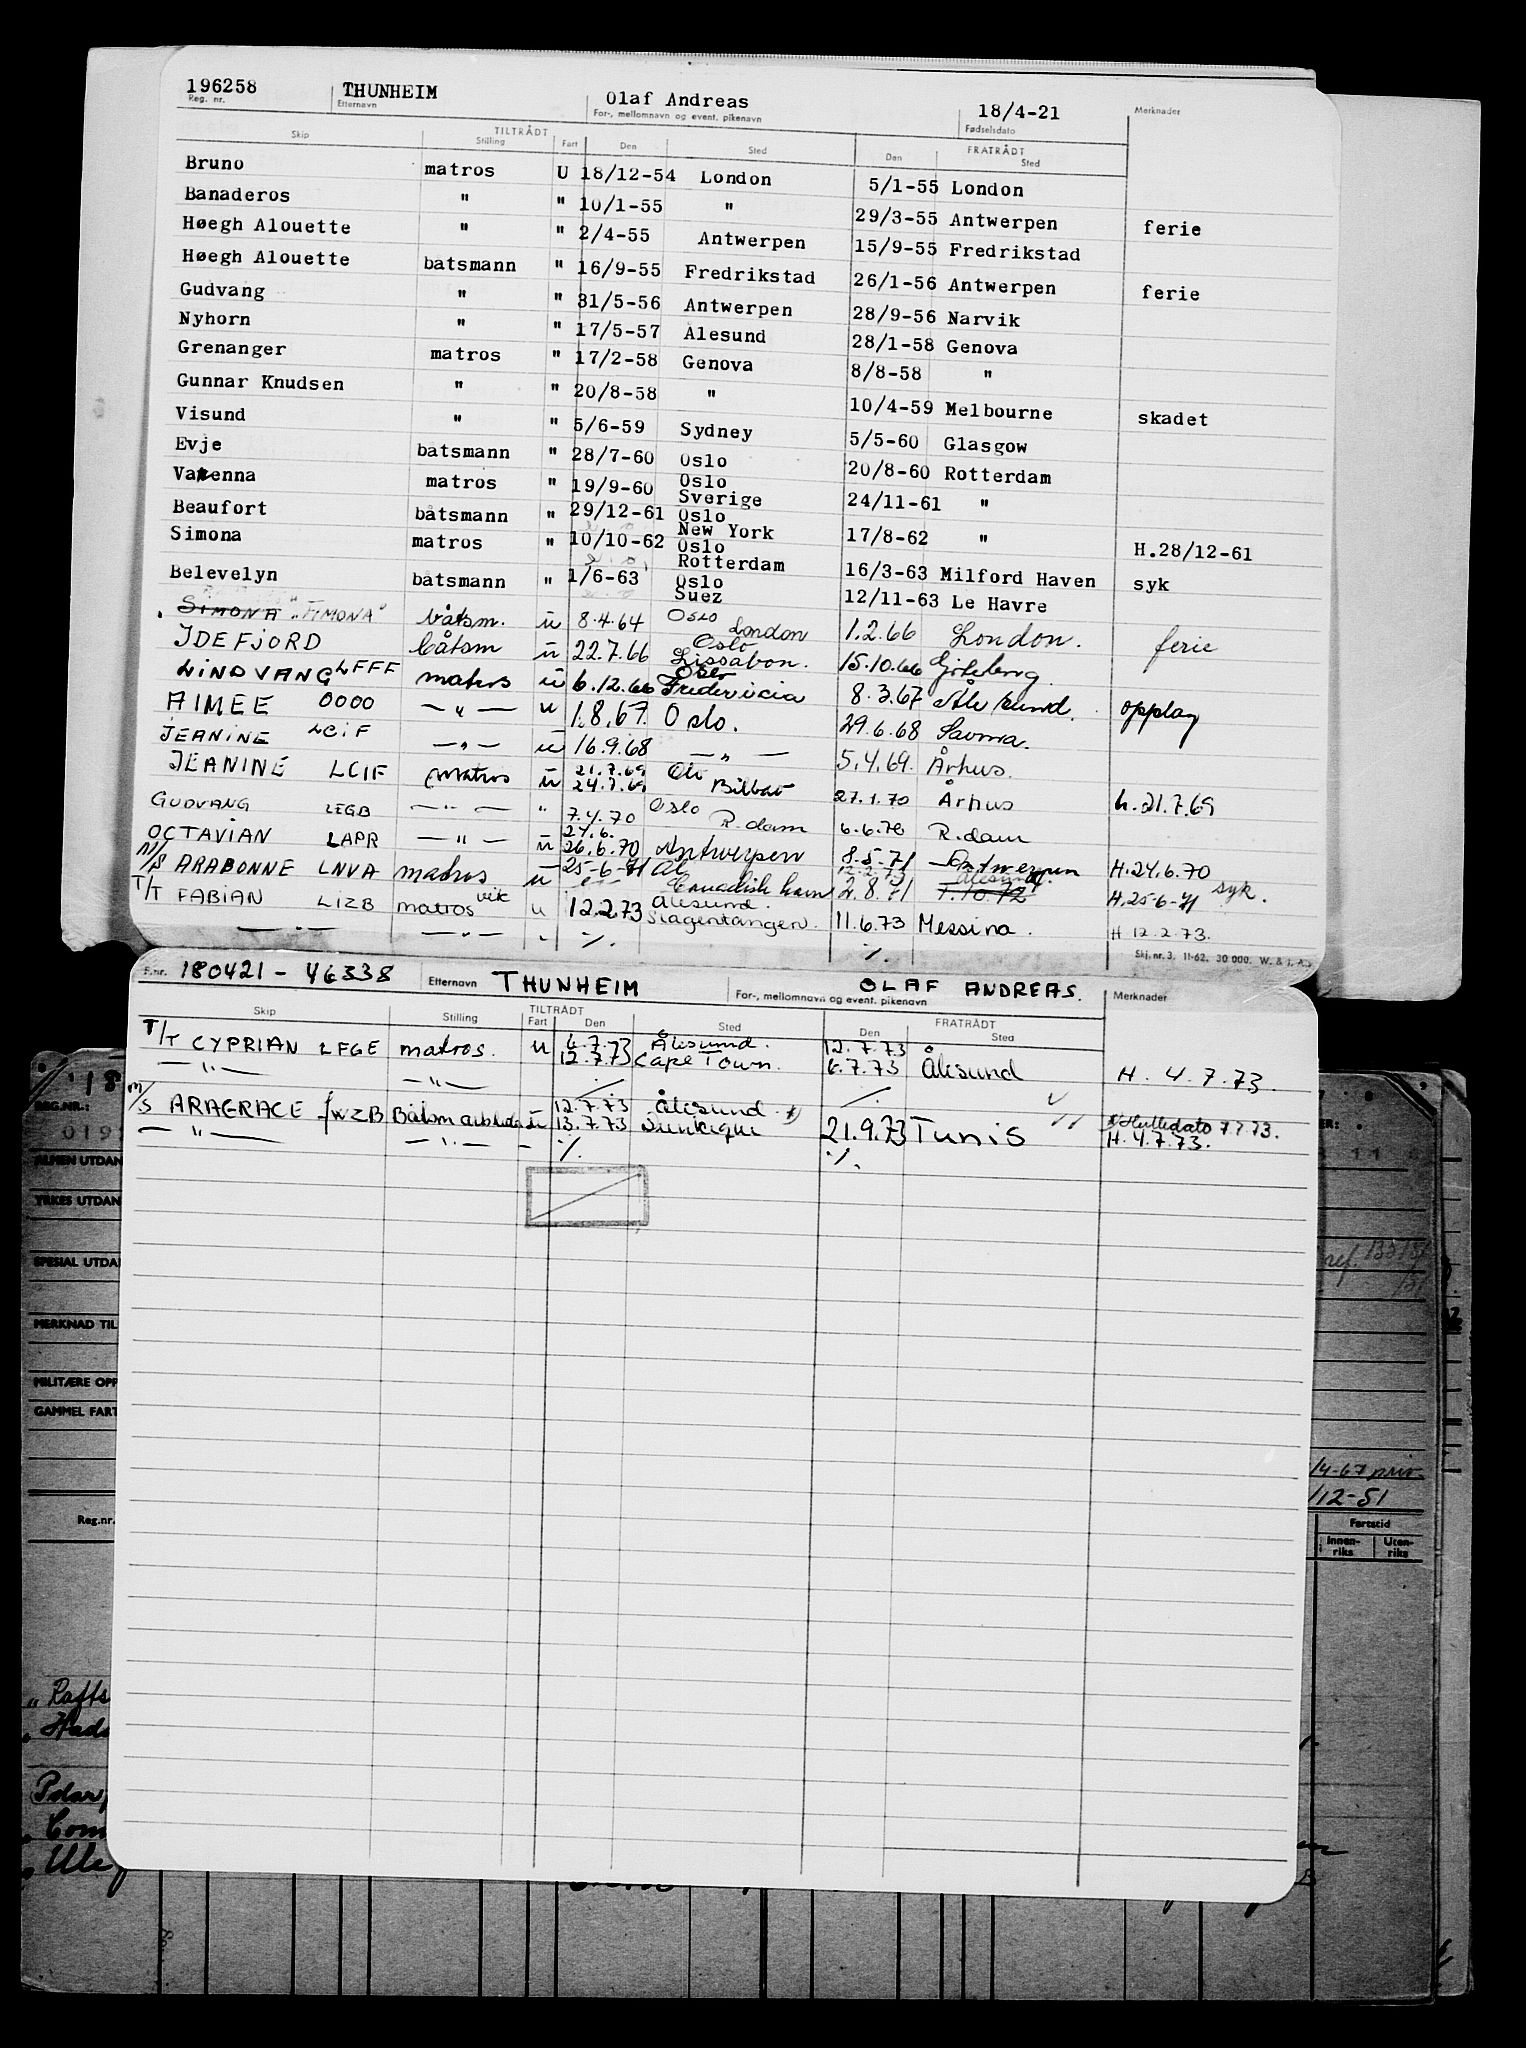 196258 THUNHEIM Olaf Andreas 18/4-21 Merknader
Reg. nr. Etternavn For-, mellomnavn og event. pikenavn Fødselsdato
TILTRÅDT FRATRÅDT
Skip Stilling Fart Den Sted Den Sted
Bruno matros U 18/12-54 London 5/1-55 London
Banaderos " " 10/1-55 " 29/3-55 Antwerpen ferie
Høegh Alouette " " 2/4-55 Antwerpen 15/9-55 Fredrikstad
Høegh Alouette båtsmann " 16/9-55 Fredrikstad 26/1-56 Antwerpen ferie
Gudvang " " 31/5-56 Antwerpen 28/9-56 Narvik
Nyhorn " " 17/5-57 Ålesund 28/1-58 Genova
Grenanger matros " 17/2-58 Genova 8/8-58 "
Gunnar Knudsen " " 20/8-58 " 10/4-59 Melbourne skadet
Visund " " 5/6-59 Sydney 5/5-60 Glasgow
Evje båtsmann " 28/7-60 Oslo 20/8-60 Rotterdam
Varenna matros " 19/9-60 Oslo Sverige 24/11-61 "
Beaufort båtsmann " 29/12-61 Oslo New York 17/8-62 " H.28/12-61
Simona matros " 10/10-62 Oslo Rotterdam 16/3-63 Milford Haven syk
Belevelyn båtsmann " 1/6-63 Oslo Suez 12/11-63 Le Havre
SIMONA "FIMONA" båtsm. u 8.4.64 Oslo London 1.2.66 London. ferie
IDEFJORD båtsm u 22.7.66 Oslo Lissabon. 15.10.66 Gøteborg
LINDVANG LFFF matros u 6.12.66 Oslo Fredericia 8.3.67 Ålesund. opplag
AIMEE OOOO — " — u 1.8.67. Oslo. 29.6.68 Savona.
JEANINE LCIF — " — u 16.9.68 — " — 5.4.69. Århus.
JEANINE LCIF matros u 21.7.69 24.7.69 Bilbao 27.1.70 Århus h.21.7.69
GUDVANG LEGB — " — " 7.4.70 Oslo R.dam 6.6.70 R.dam
OCTAVIAN LAPR — " — u 24.6. 26.6.70 Antwerpen 8.5.71 Antwerpen H.24.6.70
M/S ARABONNE LNVA matros u 25-6-71 Ål Canadisk havn 12.2.73 2.8.71 Ålesund 7.10.72 H.25-6-71 syk.
T/T FABIAN LIZB matros vik u 12.2.73 Ålesund. Slagentangen. 11.6.73 Messina. H 12.2.73.
— " — — " — " ./. ./.
Skj. nr. 3. 11-62. 30 000. W. & J. A.s
F.nr. 180421-46338 Etternavn THUNHEIM OLAF ANDREAS.
For-, mellomnavn og event. pikenavn Merknader
TILTRÅDT FRATRÅDT
Skip Stilling Fart Den Sted Den Sted
T/T CYPRIAN LFGE matros. u 6.7.73 12.7.73 Ålesund. Cape Town. 12.7.73 6.7.73 Å Ålesund H. 4.7.73.
— " — — " — ./. ./.
M/S ARAGRACE fWZB Båtsm u 12.7.73 13.7.73 Ålesund. x) 21.9.73 Tunis x Hulledato 7.7.73. H.4.7.73.
— " — — " — — ./. ./.
REG.NR.:
ALMEN UTDAN
YRKES UTDAN
SPESIAL UTDA
MERKNAD TIL
MILITÆRE OPP
GAMMEL FART
ref.
/4-67 priv.
/12-51
Reg.nr. Fartstid
Innen-riks Uten-riks
"Rafts